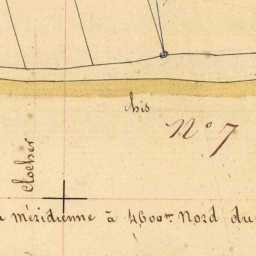 bis
N° 7
Clocher
méridienne à 4600m Nord du